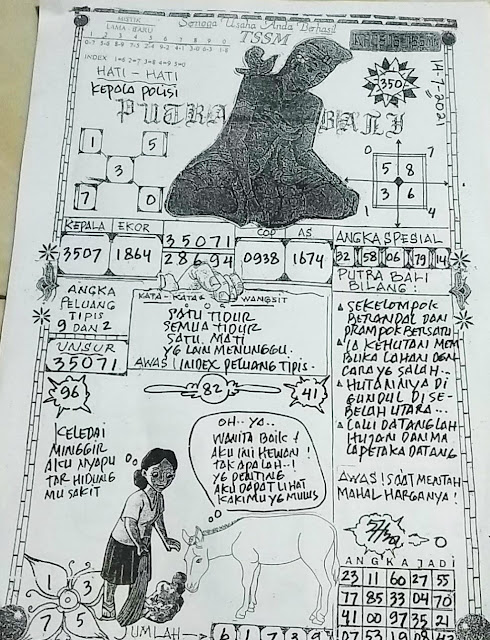 MISTIK
LAMA - BARU
1 2 3 4 5 6 7 8 9 0
INDEX 1=6 2=7 3=8 4=9 5=0
Semoga Usaha Anda Berhasil
TSSM
HATI - HATI
KEPALA POLISI
PUTRA BALI
350
14-7-2021
1 5
3
7 0
0 7
5 8
3 6
1 4
KEPALA EKOR
3507 1864
35071
28694
COP AS
0938 1674
ANGKA SPESIAL
32 58 06 79 14
ANGKA
PELUANG
TIPIS
9 DAN 2
UNSUR
35071
KATA - KATA WANGSIT
SATU TIDUR
SEMUA TIDUR
SATU MATI
YG LAIN MENUNGGU.
AWAS! INDEX PELUANG TIPIS.
PUTRA BALI
BILANG:
SEKELOMPOK
BERANDAL DAN
PRAMPOK BERSATU
IA KEHUTANI MEM
BUKA LAHAN DGN
CARA YG SALAH..
HUTANNYA DI
GUNDUL DI SE-
BELAH UTARA...
LALU DATANGLAH
HUJAN DAN MA
LAPETAKA DATANG
96
82
41
KELEDAI
MINGGIR
AKU NYAPU
TAR HIDUNG
MU SAKIT
OH.. YA..
WANITA BAIK!
AKU INI HEWAN!
TAK APALAH..!
YG PENTING
AKU DAPAT LIHAT
KAKIMU YG MULUS
AWAS! SAAT MENTAH
MAHAL HARGANYA!
0
ANGKA JADI
23 11 60 27 55
77 85 33 04 70
41 00 97 35 21
1 3
7 5
JUMLAH → 6 1 7 3